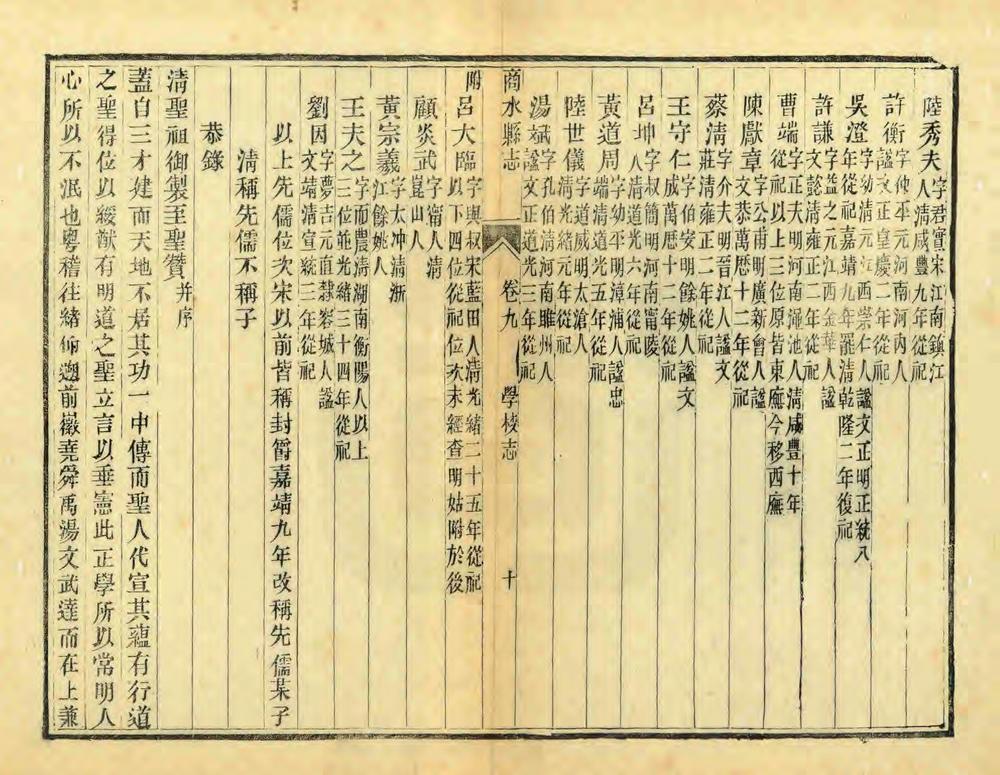 陸秀夫字君實宋江南鎮江人清咸豐九年從祀
許衡字仲平元河南河內人謚文正皇慶二年從祀
吳澄字幼清元江西崇仁人謚文正明正統八年從祀嘉靖九年罷清乾隆二年復祀
許謙字益之元江西金華人謚文懿清雍正二年從祀
曹端字正夫明河南澠池人清咸豐十年從祀以上三位原皆東廡今移西廡
陳獻章字公甫明廣新會人謚文恭萬曆十二年從祀
蔡清字介夫明晉江人謚文莊清雍正二年從祀
王守仁字伯安明餘姚人謚文成萬曆十二年從祀
呂坤字叔簡明河南甯陵人清道光六年從祀
黃道周字幼平明漳浦人謚忠端清道光五年從祀
陸世儀字道威明太滄人清光緒元年從祀
湯斌字孔伯清河南睢州人謚文正道光三年從祀
商水縣志 卷九 學校志 十
附呂大臨字與叔宋藍田人清光緒二十五年從祀以下四位從祀位次未經查明姑附於後
顧炎武字甯人清崑山人
黃宗羲字太冲清浙江餘姚人
王夫之字而農清湖南衡陽人以上三位並光緒三十四年從祀
劉因字夢吉元直隸容城人謚文靖清宣統三年從祀
以上先儒位次宋以前皆稱封爵嘉靖九年改稱先儒某子
清稱先儒不稱子
恭錄
清聖祖御製至聖贊并序
蓋自三才建而天地不居其功一中傳而聖人代宣其蘊有行道
之聖得位以綏猷有明道之聖立言以垂憲此正學所以常明人
心所以不泯也粵稽往緒仰遡前徽堯舜禹湯文武達而在上兼